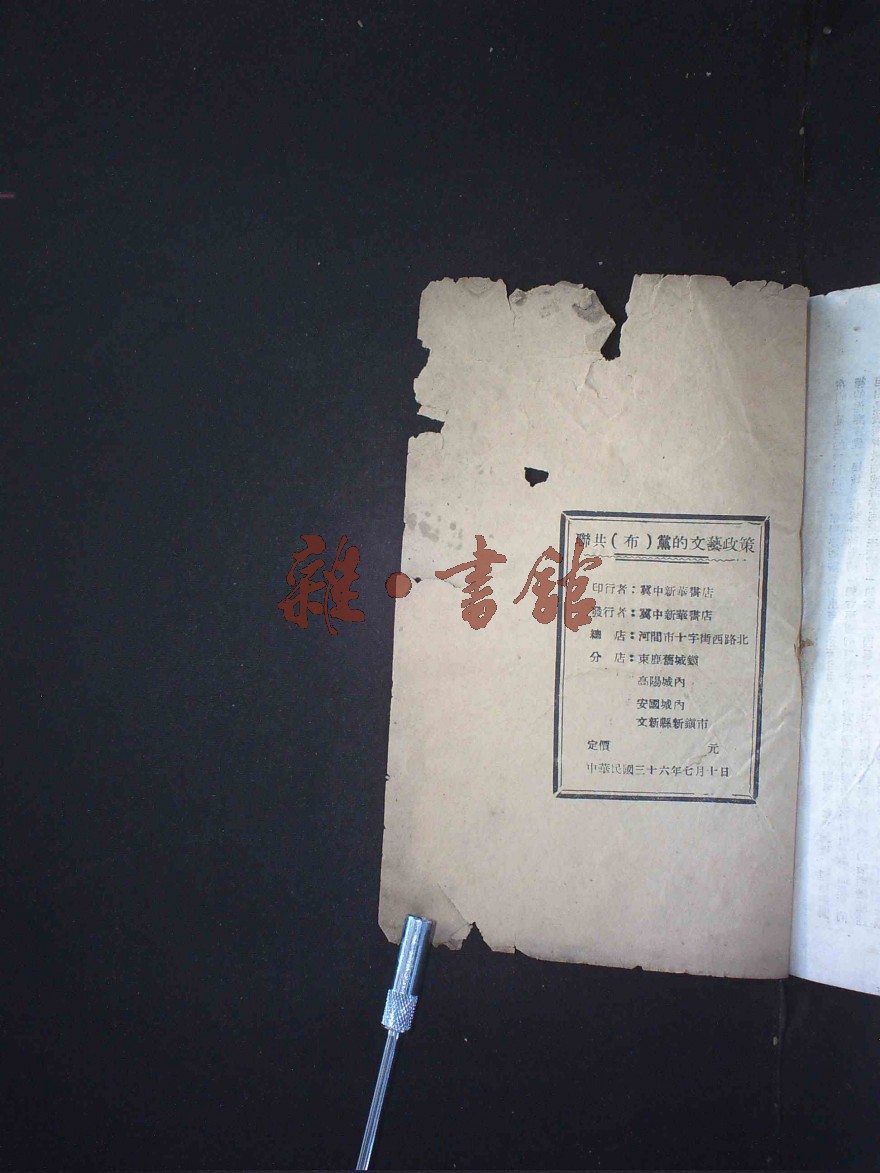 聯共(布)黨的文藝政策
印行者:冀中新華書店
發行者:冀中新華書店
總 店:河間市十字街西路北
分 店:束鹿舊城鎮
高陽城內
安國城內
文新縣新鎮市
定價 元
中華民國三十六年七月十日
雜·書館